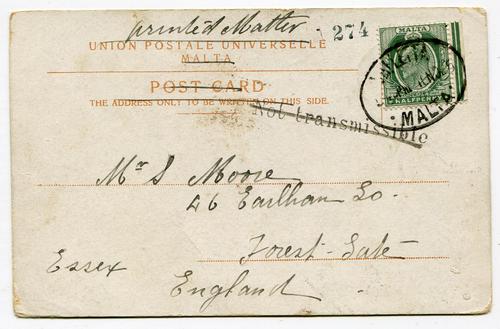 printed Matter
274
UNION POSTALE UNIVERSELLE
MALTA
POST CARD
THE ADDRESS ONLY TO BE WRITTEN ON THIS SIDE.
MALTA
HALFPENNY
VALLETTA
MALTA
Not transmissible
Mr S Moore
46 Earlham Go
Forest-Gate
Essex
England